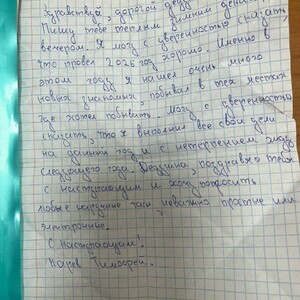 Здравствуй, дорогой дедушка
Пишу тебе теплым зимним
вечером. Я могу с уверенностью сказать,
что провел 2025 год хорошо. Именно в
этом году я нашел очень много
новых знакомых, побывал в тех местах
где хотел побывать. Могу с уверенностью
сказать, что я выполнил все свои цели
на данный год и с нетерпением жду
следующего года. Дедушка, поздравляю тебя
с наступающим и хочу попросить
любые наручные часы, неважно простые или
электронные.
С Наступающим!
Тимофей.